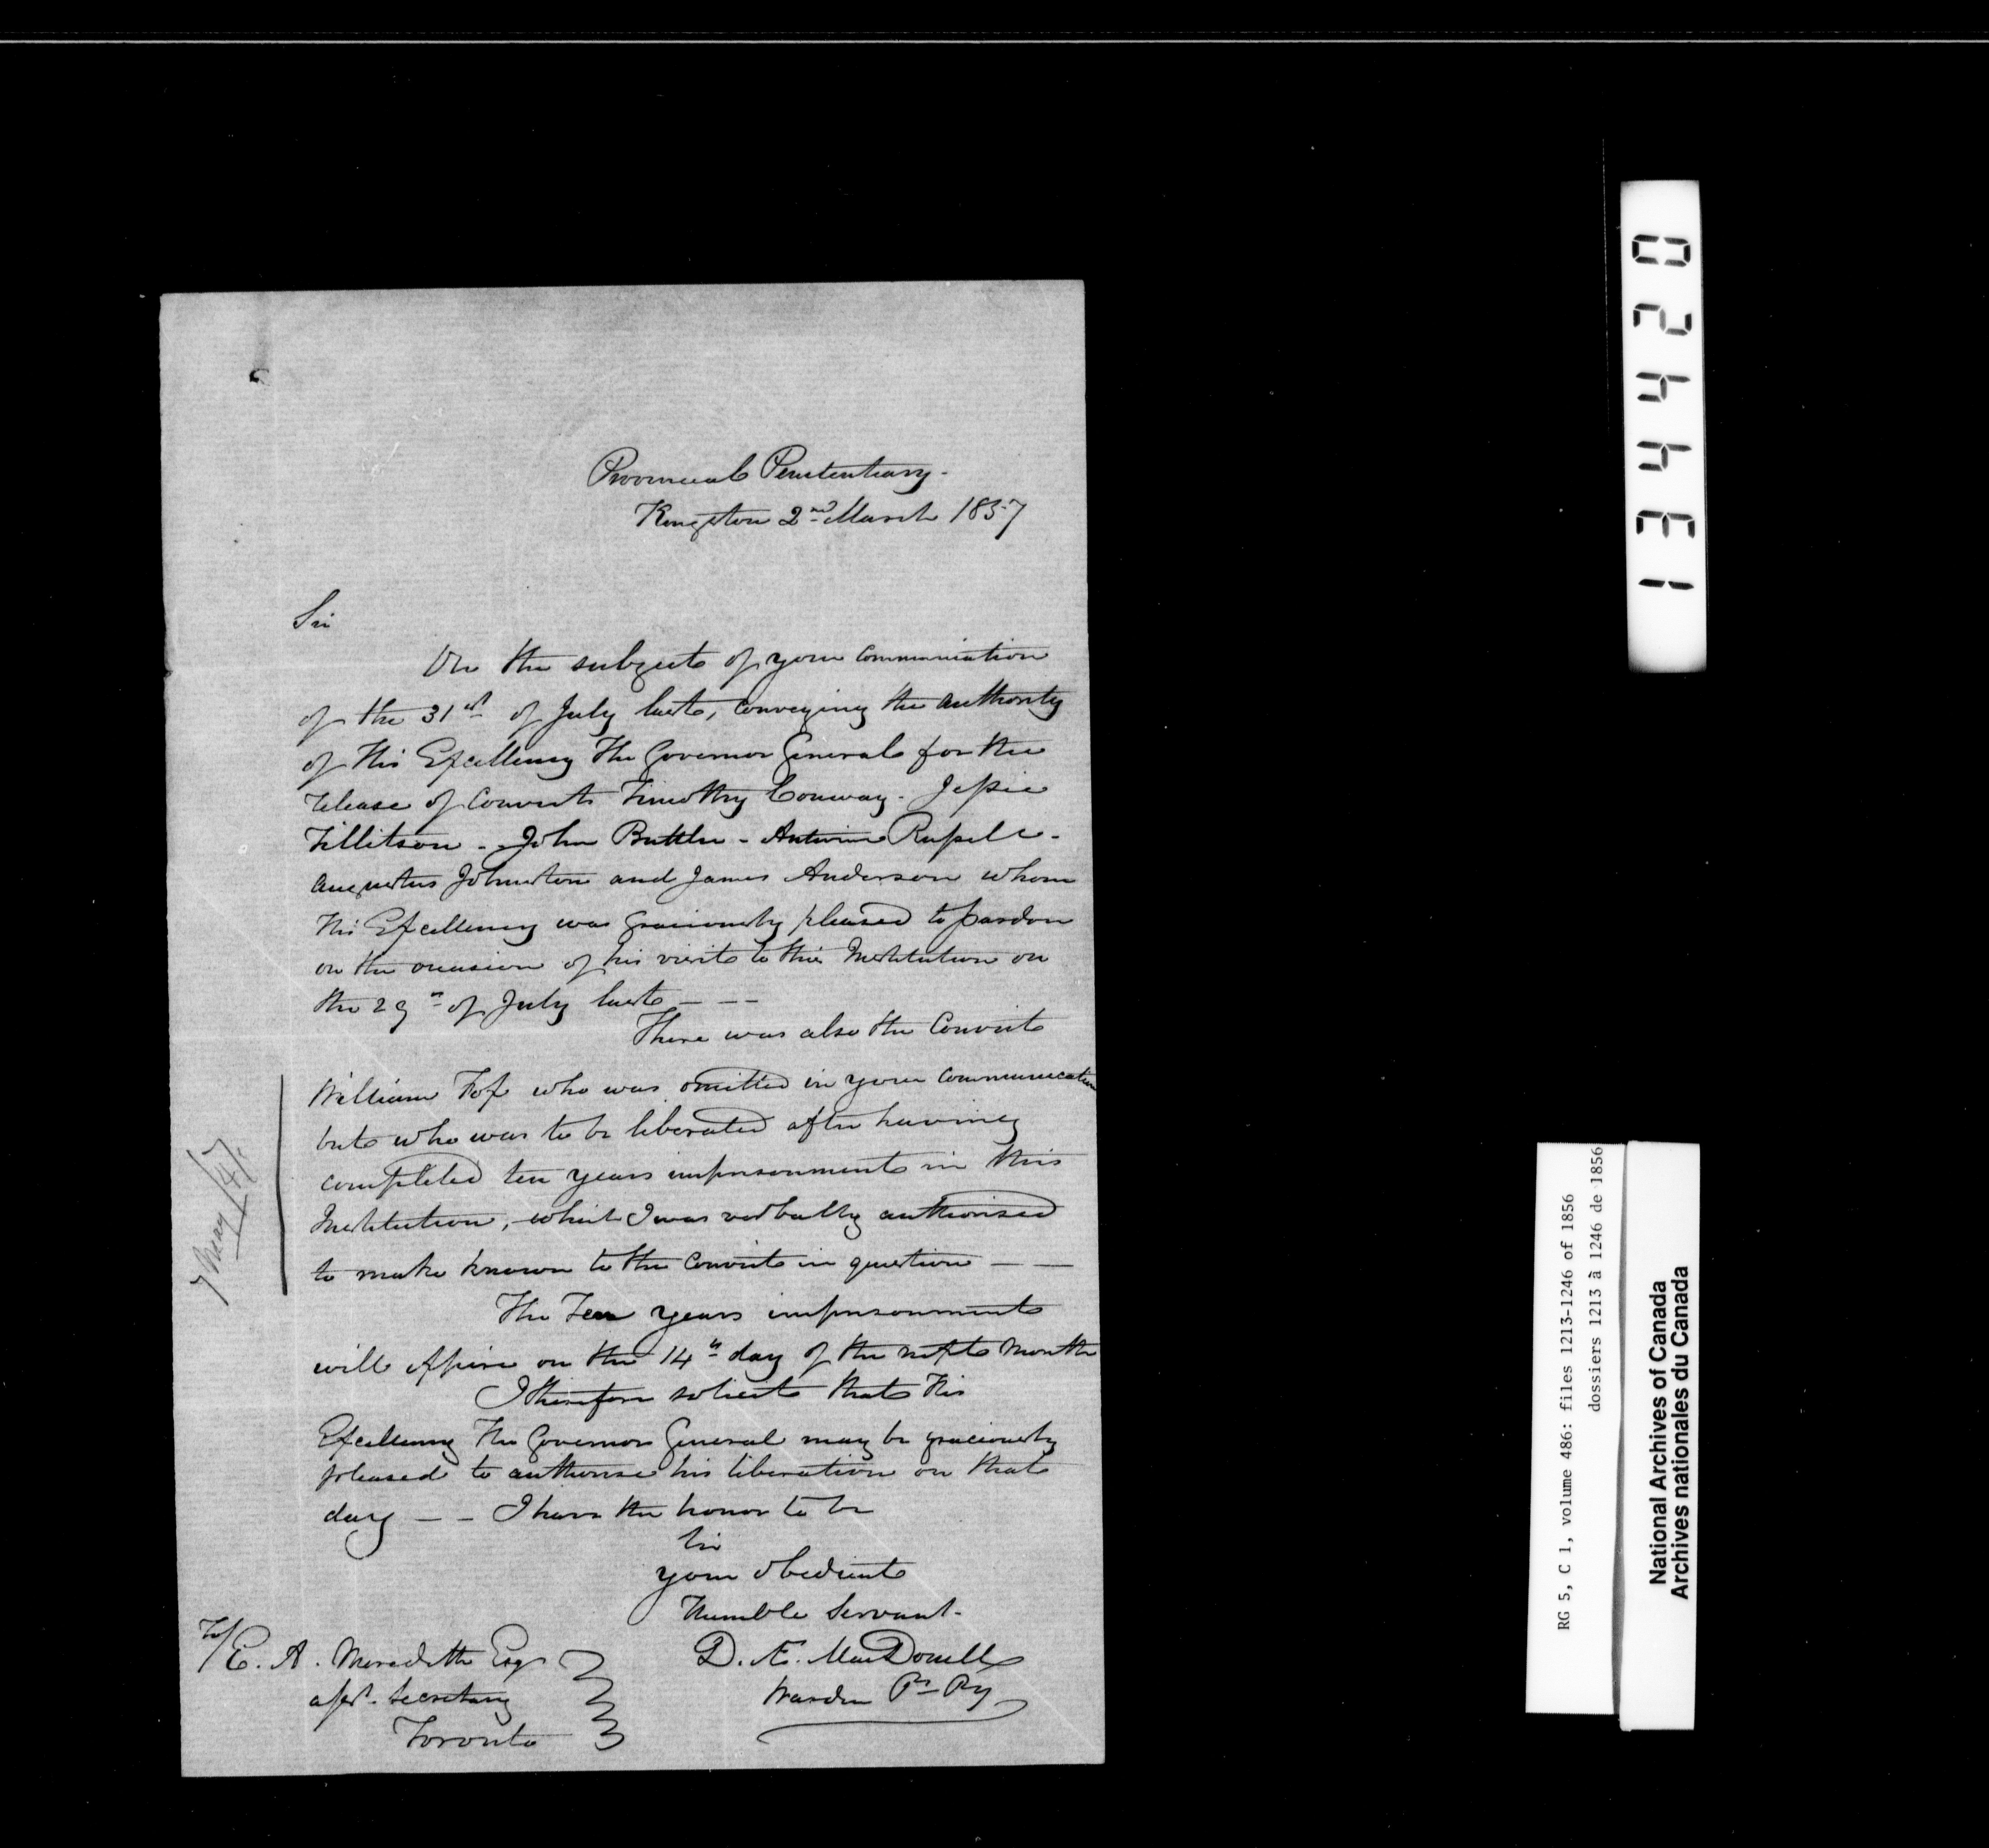 Provincial Penitentiary.
Kingston 2nd March 1857
Sir
On the subject of your communication
of the 31st of July last, conveying the authority
of His Excellency The Governor General for the
release of Convicts Timothy Conway. Jessie
Tillitson - John Buttler - Antoine Russell -
Augustus Johnston and James Anderson whom
His Excellency was graciously pleased to pardon
on the occasion of his visit to this Institution on
the 29th of July last - - -
There was also the Convict
William Fox who was omitted in your communication
but who was to be liberated after having
completed ten years imprisonment in this
Institution, which I was verbally authorised
to make known to the Convict in question - -
The Ten years imprisonment
will expire on the 14th day of the next month
I therefore solicit that His
Excellency The Governor General may be graciously
pleased to authorise his liberation on that
day - - I have the honor to be
Sir
your obedient
Humble Servant.
D. Æ. MacDonell
Warden P. Py
To/ E. A. Meredith Esqr
asst. Secretary
Toronto
7 May /47
024431
RG 5, C 1, volume 486: files 1213-1246 of 1856
dossiers 1213 à 1246 de 1856
National Archives of Canada
Archives nationales du Canada